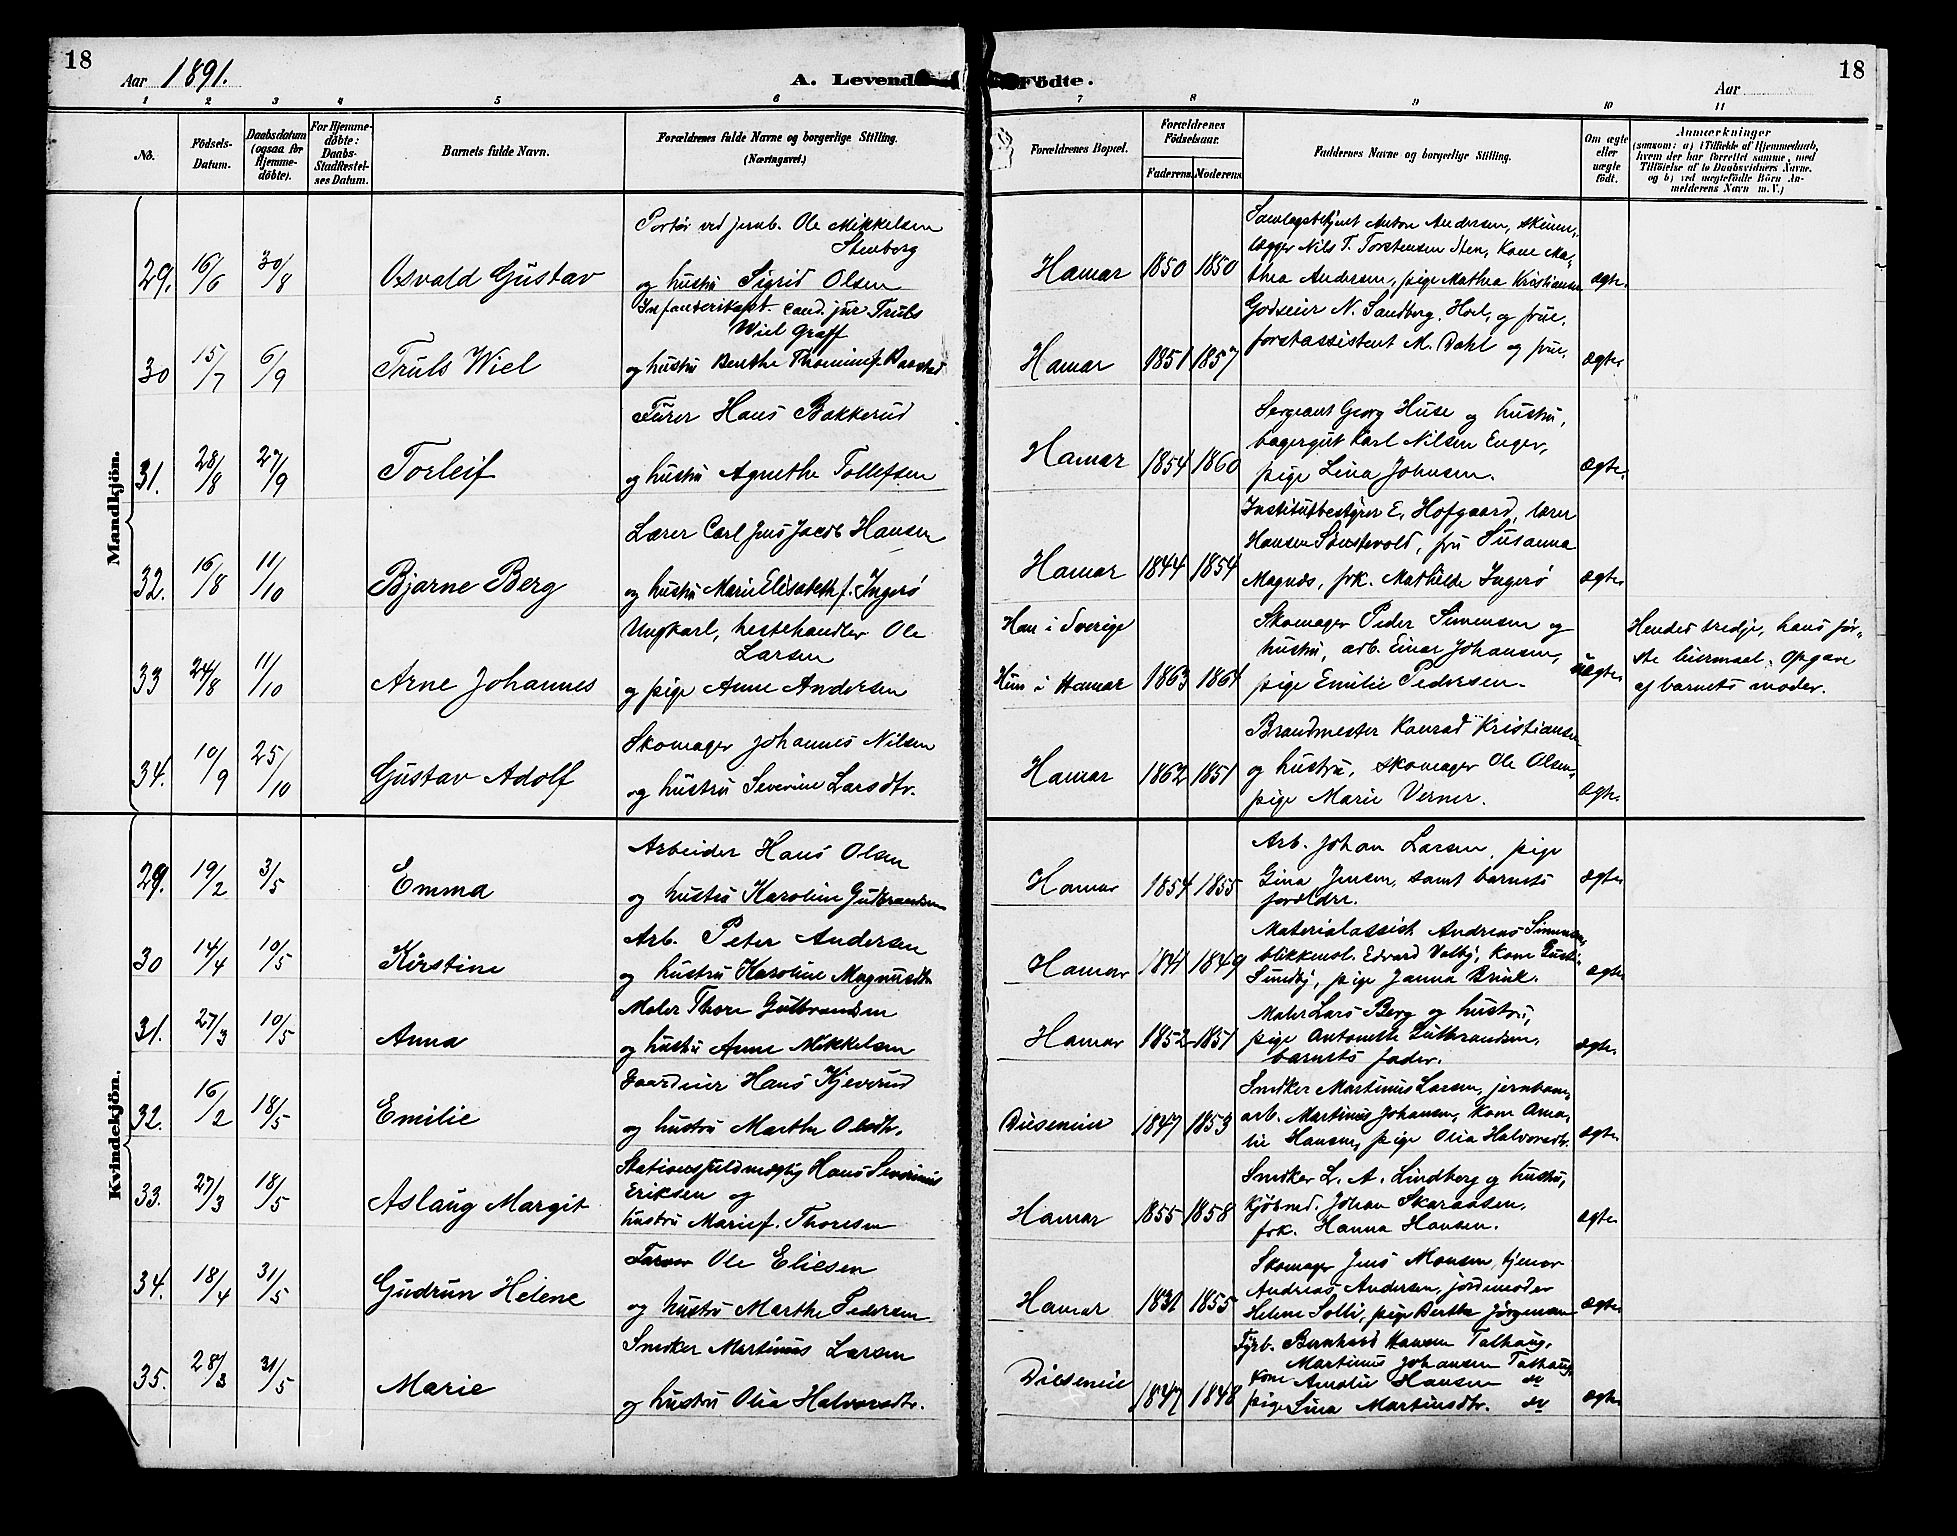 18
Aar 1891.
A. Levende Födte.
Aar
18
1 2 3 4 5 6 7 8 9 10 11
No.
Födsels-Datum.
Daabsdatum (ogsaa for Hjemme-döbte).
For Hjemme-döbte: Daabs-Stadfæstel-ses Datum.
Barnets fulde Navn.
Forældrenes fulde Navne og borgerlige Stilling.
(Næringsvei.)
Forældrenes Bopæl.
Forældrenes Födselsaar.
Faderens. Moderens.
Faddernes Navne og borgerlige Stilling.
Om ægte eller uægte födt.
Anmærkninger
(saasom: a) i Tilfælde af Hjemmedaab, hvem der har forrettet samme, med Tilföielse af to Daabsvidners Navne, og b) ved uægtefödte Börn An-melderens Navn m. V.)
Mandkjön.
29. 16/6 30/8 Osvald Gustav
Portör ved jernb. Ole Mikkelsen
Stenberg
og hustru Sigrid Olsen
Hamar 1850 1850
Samlagsbetjent Anton Andersen, skinn-
lægger Nils T. Torstensen Sten, Kone Ma-
thea Andersen, pige Mathea Kristiansen
ægte.
30 15/7 6/9 Truls Wiel
cand. jur Truls
Wiel Graff
og hustru Berthe Thomine f. Raastad
Hamar 1851 1857
Godseier N. Sandberg, Hoel, og frue,
forstassistent M. Dahl og frue.
ægte.
31. 28/8 27/9 Torleif
Furer Hans Bakkerud
og hustru Agnethe Tollefsen
Hamar 1854 1860
Sergeant Georg Huse og hustru,
bagergut Karl Nilsen Enger,
pige Lina Johnsen.
ægte.
32. 16/8 11/10 Bjarne Berg
Lærer Carl Jens Jacob Hansen
og hustru Marie Elisabeth f. Ingerö
Hamar 1844 1854
Institutbestyrer E. Hofgaard, lærer
Hansen Sönstevold, fru Susanna
Magnæs, frk. Mathilde Ingerö
ægte.
33 24/8 11/10 Arne Johannes
Ungkarl, hestehandler Ole
Larsen
og pige Anne Andersen
Han i Sverige
Hun i Hamar 1863 1864
Skomager Peder Simensen og
hustru, arb. Einar Johansen,
pige Emilie Pedersen.
uægte.
Hendes tredje, hans før-
ste leiermaal. Opgave
af barnets moder.
34. 10/9 25/10 Gustav Adolf
Skomager Johannes Nilsen
og hustru Severine Larsdtr.
Hamar 1862 1851
Brandmester Konrad Kristiansen
og hustru, skomager Ole Olsen,
pige Marie Verner.
ægte.
Kvindekjön.
29. 19/2 3/5 Emma
Arbeider Hans Olsen
og hustru Karoline Gudbrandsen
Hamar 1854 1855
Arb. Johan Larsen, pige
Gina Jensen, samt barnets
forældre.
ægte.
30 14/4 10/5 Kirstine
Arb. Peter Andersen
og hustru Karoline Magnusdtr
Hamar 1849
Materialassist. Andreas Simensen,
blikkensl. Edvard Valby, Kone
Sundby, pige Janna Brink.
ægte.
31. 27/3 10/5 Anna
Maler Thore Gulbrandsen
og hustru Anne Mikkelsen
Hamar 1852 1851
Maler Lars Berg og hustru,
pige Antonette Gulbrandsen,
barnets fader.
ægte.
32. 16/2 18/5 Emilie
Gaardeier Hans Kjeverud
og hustru Marthe Olsdtr.
Diseneier 1847 1853
Snedker Martinus Larsen, jernbane
arb. Martinus Johansen, Kone Ama-
lie Hansen, pige Olia Halvorsdtr.
ægte.
33. 27/3 18/5 Aslaug Margit
Stationsfuldmægtig Hans Severinus
Eriksen og
hustru Marie f. Thoresen
Hamar 1855 1858
Snedker L. A. Lindberg og hustru,
Kjöbmd. Johan Skaraasen,
frk. Hanna Hansen.
ægte.
34. 18/4 31/5 Gudrun Helene
Farver Ole Eliesen
og hustru Marthe Pedersen
Hamar 1855
Skomager Jens Monsen, tjener
Andreas Andersen, jordemoder
Helene Solli, pige Berthe Jörgensen
ægte.
35. 28/3 31/5 Marie
Snedker Martinus Larsen
og hustru Olia Halvorsdtr.
Diseneie 1847 1848
Fyrb. Bernhard Hansen Talhaug,
Martinus Johansen Talhaug,
Kone Amalie Hansen
pige Lina Martinsdtr.
ægte.